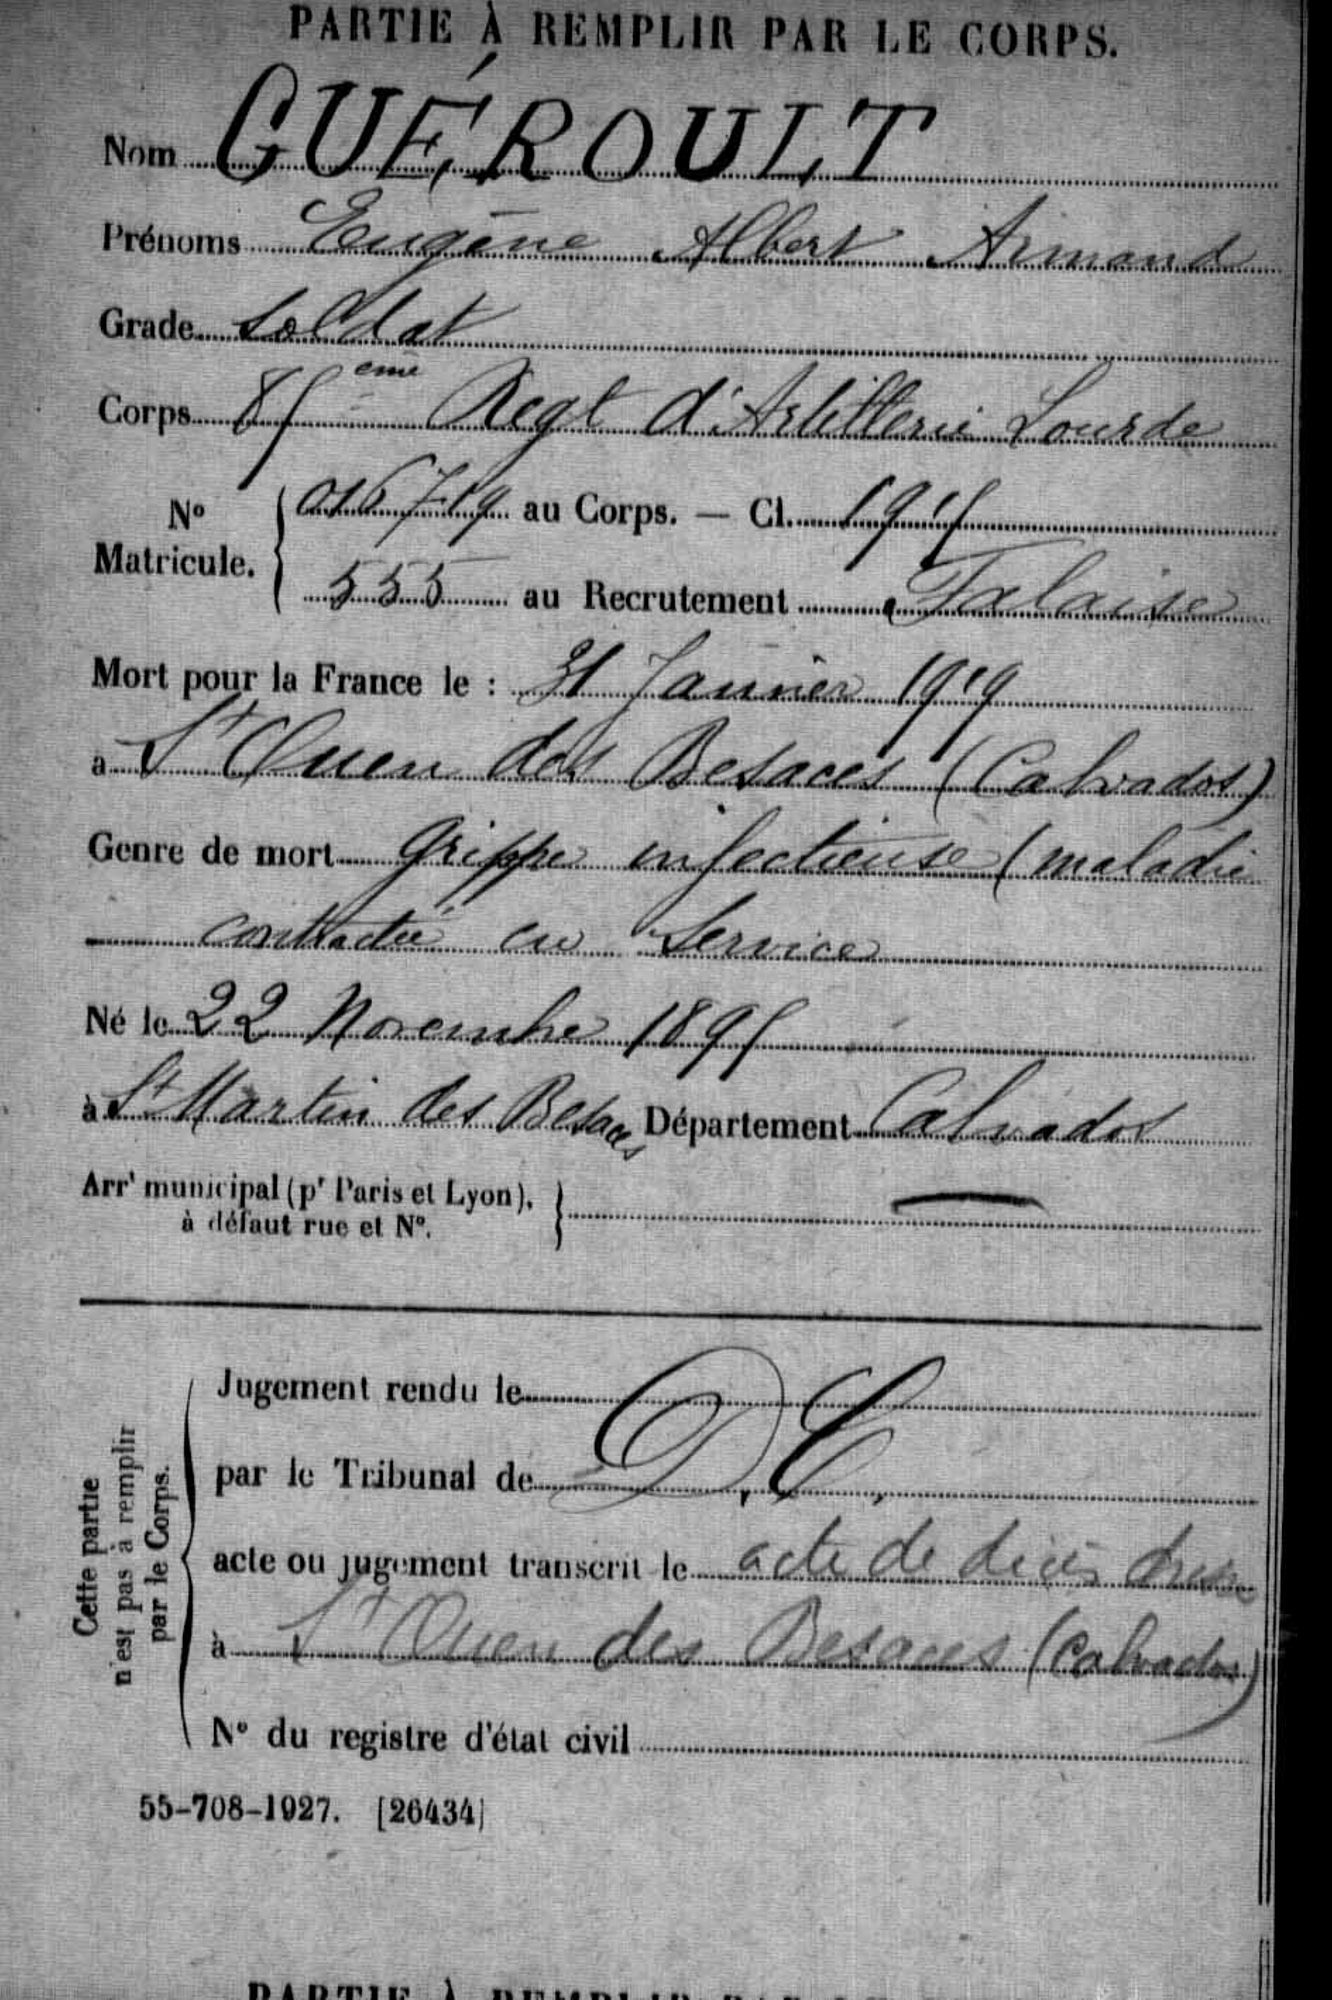 PARTIE À REMPLIR PAR LE CORPS.
Nom GUÉROULT
Prénoms Eugène Albert Armand
Grade Soldat
Corps 85ème Regt d'Artillerie Lourde
No Matricule. 016719 au Corps. — Cl. 1915
555 au Recrutement Falaise
Mort pour la France le : 31 Janvier 1919
à St Ouen des Besaces (Calvados)
Genre de mort Grippe infectieuse (maladie
contractée en Service
Né le 22 Novembre 1895
à St Martin des Besaces Département Calvados
Arrt municipal (pr Paris et Lyon),
à défaut rue et No. —
Cette partie
n'est pas à remplir
par le Corps.
Jugement rendu le
par le Tribunal de D. C.
acte ou jugement transcrit le acte de décès dressé
à St Ouen des Besaces (Calvados)
No du registre d'état civil
55-708-1927. [26434]
PARTIE À REMPLIR PAR LE